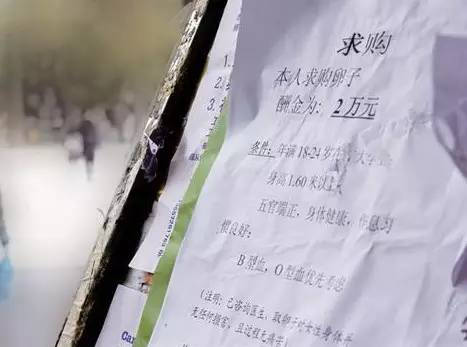 求购
本人求购卵子
酬金为：2万元
条件：年满18-24岁
身高1.60米以上
五官端正，身体健康，作息习
惯良好；
B型血，O型血优先考虑
（注明：已咨询医生，取卵子对女性身体
无任何损害，且过程无痛苦）
1.
2.
3.